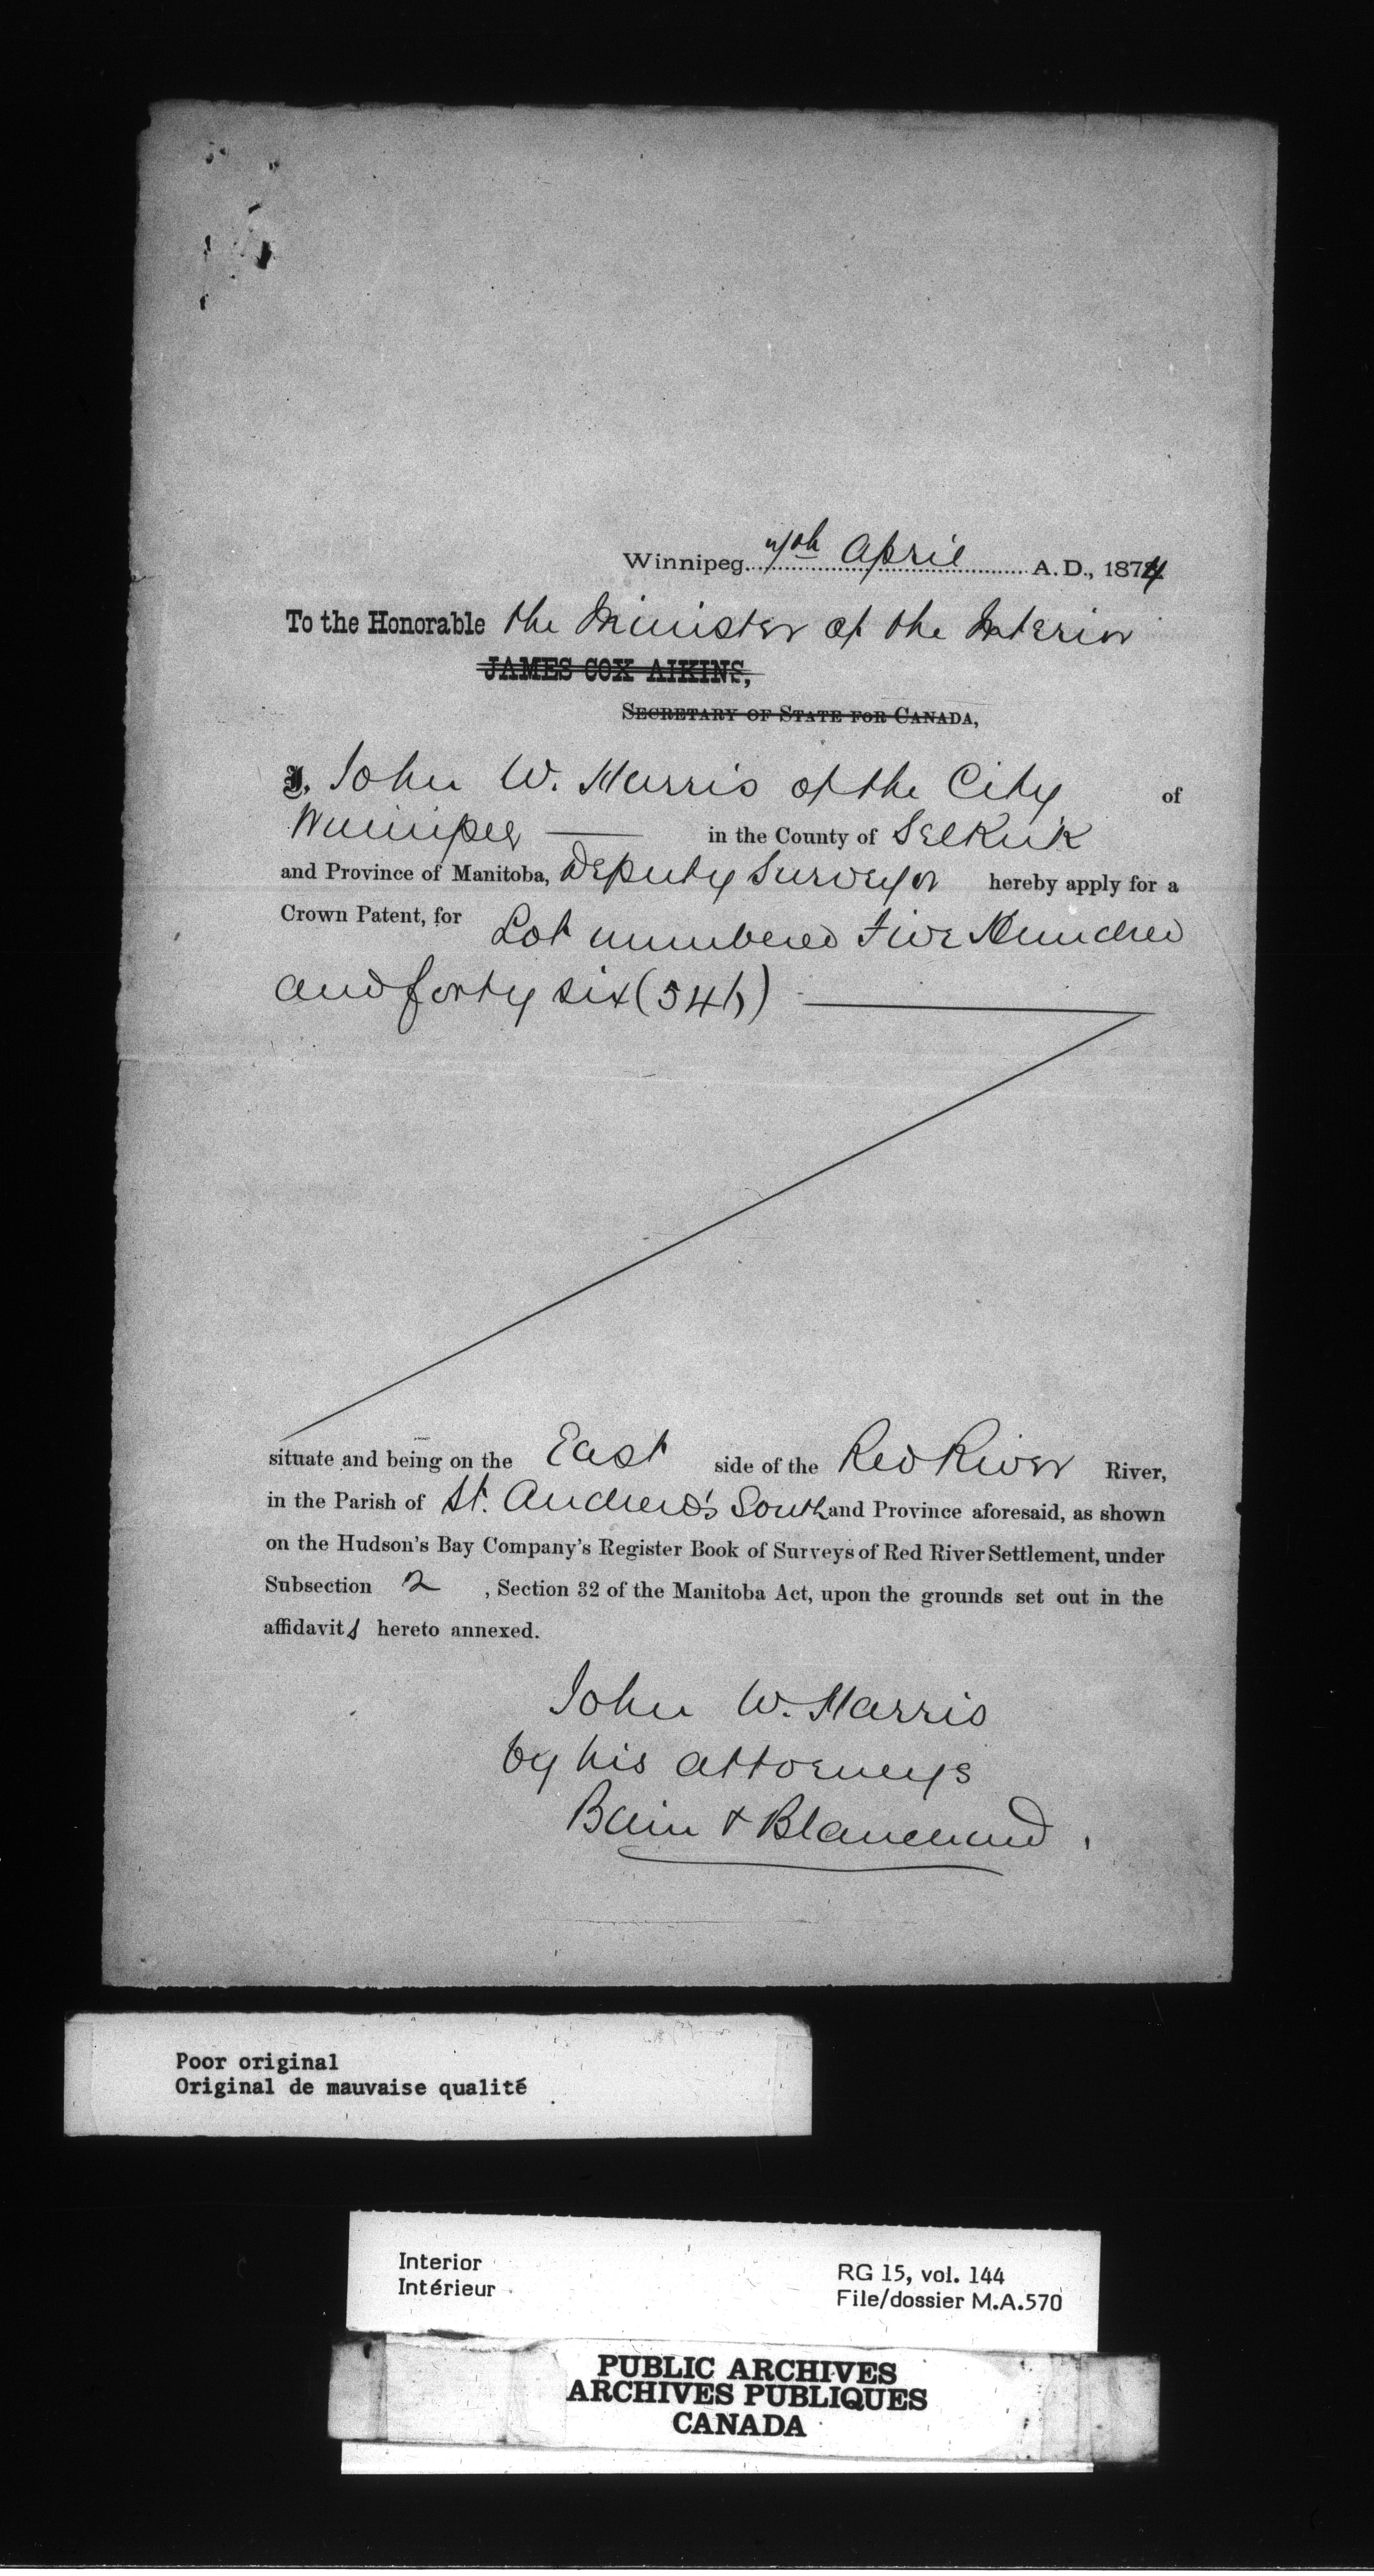 Winnipeg. 7th April A.D., 1874
To the Honorable the Minister of the Interior
JAMES COX AIKINS,
SECRETARY OF STATE FOR CANADA,
I, John W. Harris of the City of
Winnipeg in the County of Selkirk
and Province of Manitoba, Deputy Surveyor hereby apply for a
Crown Patent, for Lot numbered Five Hundred
and forty six (546)
situate and being on the East side of the Red River River,
in the Parish of St. Andrew's South and Province aforesaid, as shown
on the Hudson's Bay Company's Register Book of Surveys of Red River Settlement, under
Subsection 2, Section 32 of the Manitoba Act, upon the grounds set out in the
affidavits hereto annexed.
John W. Harris
by his attorneys
Bain & Blanchard.
Poor original
Original de mauvaise qualité
Interior
Intérieur
RG 15, vol. 144
File/dossier M.A.570
PUBLIC ARCHIVES
ARCHIVES PUBLIQUES
CANADA